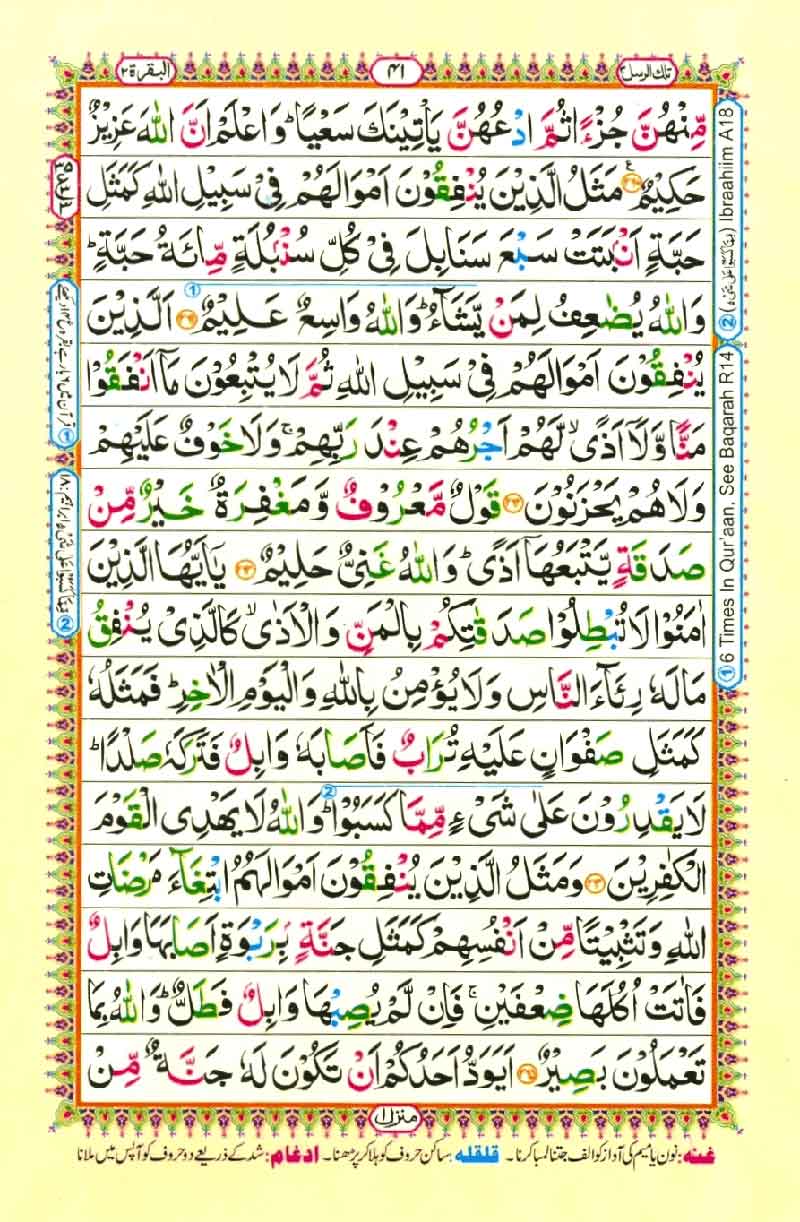 تلك الرسل ٣
٤١
البقرة ٢
مِّنْهُنَّ جُزْءًا ثُمَّ ادْعُهُنَّ يَأْتِيْنَكَ سَعْيًا ؕ وَاعْلَمْ اَنَّ اللّٰهَ عَزِيْزٌ
حَكِيْمٌ ۟ مَثَلُ الَّذِيْنَ يُنْفِقُوْنَ اَمْوَالَهُمْ فِیْ سَبِيْلِ اللّٰهِ كَمَثَلِ
حَبَّةٍ اَنْۢبَتَتْ سَبْعَ سَنَابِلَ فِیْ كُلِّ سُنْۢبُلَةٍ مِّائَةُ حَبَّةٍ ؕ
وَاللّٰهُ يُضٰعِفُ لِمَنْ يَّشَآءُ ؕ وَاللّٰهُ وَاسِعٌ عَلِيْمٌ ۟ اَلَّذِيْنَ
يُنْفِقُوْنَ اَمْوَالَهُمْ فِیْ سَبِيْلِ اللّٰهِ ثُمَّ لَا يُتْبِعُوْنَ مَاۤ اَنْفَقُوْا
مَنًّا وَّلَاۤ اَذًی ۙ لَّهُمْ اَجْرُهُمْ عِنْدَ رَبِّهِمْ ۚ وَلَا خَوْفٌ عَلَيْهِمْ
وَلَا هُمْ يَحْزَنُوْنَ ۟ قَوْلٌ مَّعْرُوْفٌ وَّمَغْفِرَةٌ خَيْرٌ مِّنْ
صَدَقَةٍ يَّتْبَعُهَاۤ اَذًی ؕ وَاللّٰهُ غَنِیٌّ حَلِيْمٌ ۟ يٰۤاَيُّهَا الَّذِيْنَ
اٰمَنُوْا لَا تُبْطِلُوْا صَدَقٰتِكُمْ بِالْمَنِّ وَالْاَذٰی ۙ كَالَّذِیْ يُنْفِقُ
مَالَهٗ رِئَآءَ النَّاسِ وَلَا يُؤْمِنُ بِاللّٰهِ وَالْيَوْمِ الْاٰخِرِ ؕ فَمَثَلُهٗ
كَمَثَلِ صَفْوَانٍ عَلَيْهِ تُرَابٌ فَاَصَابَهٗ وَابِلٌ فَتَرَكَهٗ صَلْدًا ؕ
لَا يَقْدِرُوْنَ عَلٰی شَیْءٍ مِّمَّا كَسَبُوْا ؕ وَاللّٰهُ لَا يَهْدِی الْقَوْمَ
الْكٰفِرِيْنَ ۟ وَمَثَلُ الَّذِيْنَ يُنْفِقُوْنَ اَمْوَالَهُمُ ابْتِغَآءَ مَرْضَاتِ
اللّٰهِ وَتَثْبِيْتًا مِّنْ اَنْفُسِهِمْ كَمَثَلِ جَنَّةٍۭ بِرَبْوَةٍ اَصَابَهَا وَابِلٌ
فَاٰتَتْ اُكُلَهَا ضِعْفَيْنِ ۚ فَاِنْ لَّمْ يُصِبْهَا وَابِلٌ فَطَلٌّ ؕ وَاللّٰهُ بِمَا
تَعْمَلُوْنَ بَصِيْرٌ ۟ اَيَوَدُّ اَحَدُكُمْ اَنْ تَكُوْنَ لَهٗ جَنَّةٌ مِّنْ
① 6 Times In Qur'aan, See Baqarah R14
② Ibraahiim A18
منزل ١
غنه: نون یا میم کی آواز کو الف جتنا لمبا کرنا۔ قلقله: ساکن حروف کو ہلا کر پڑھنا۔ ادغام: شد کے ذریعے دو حروف کو آپس میں ملانا